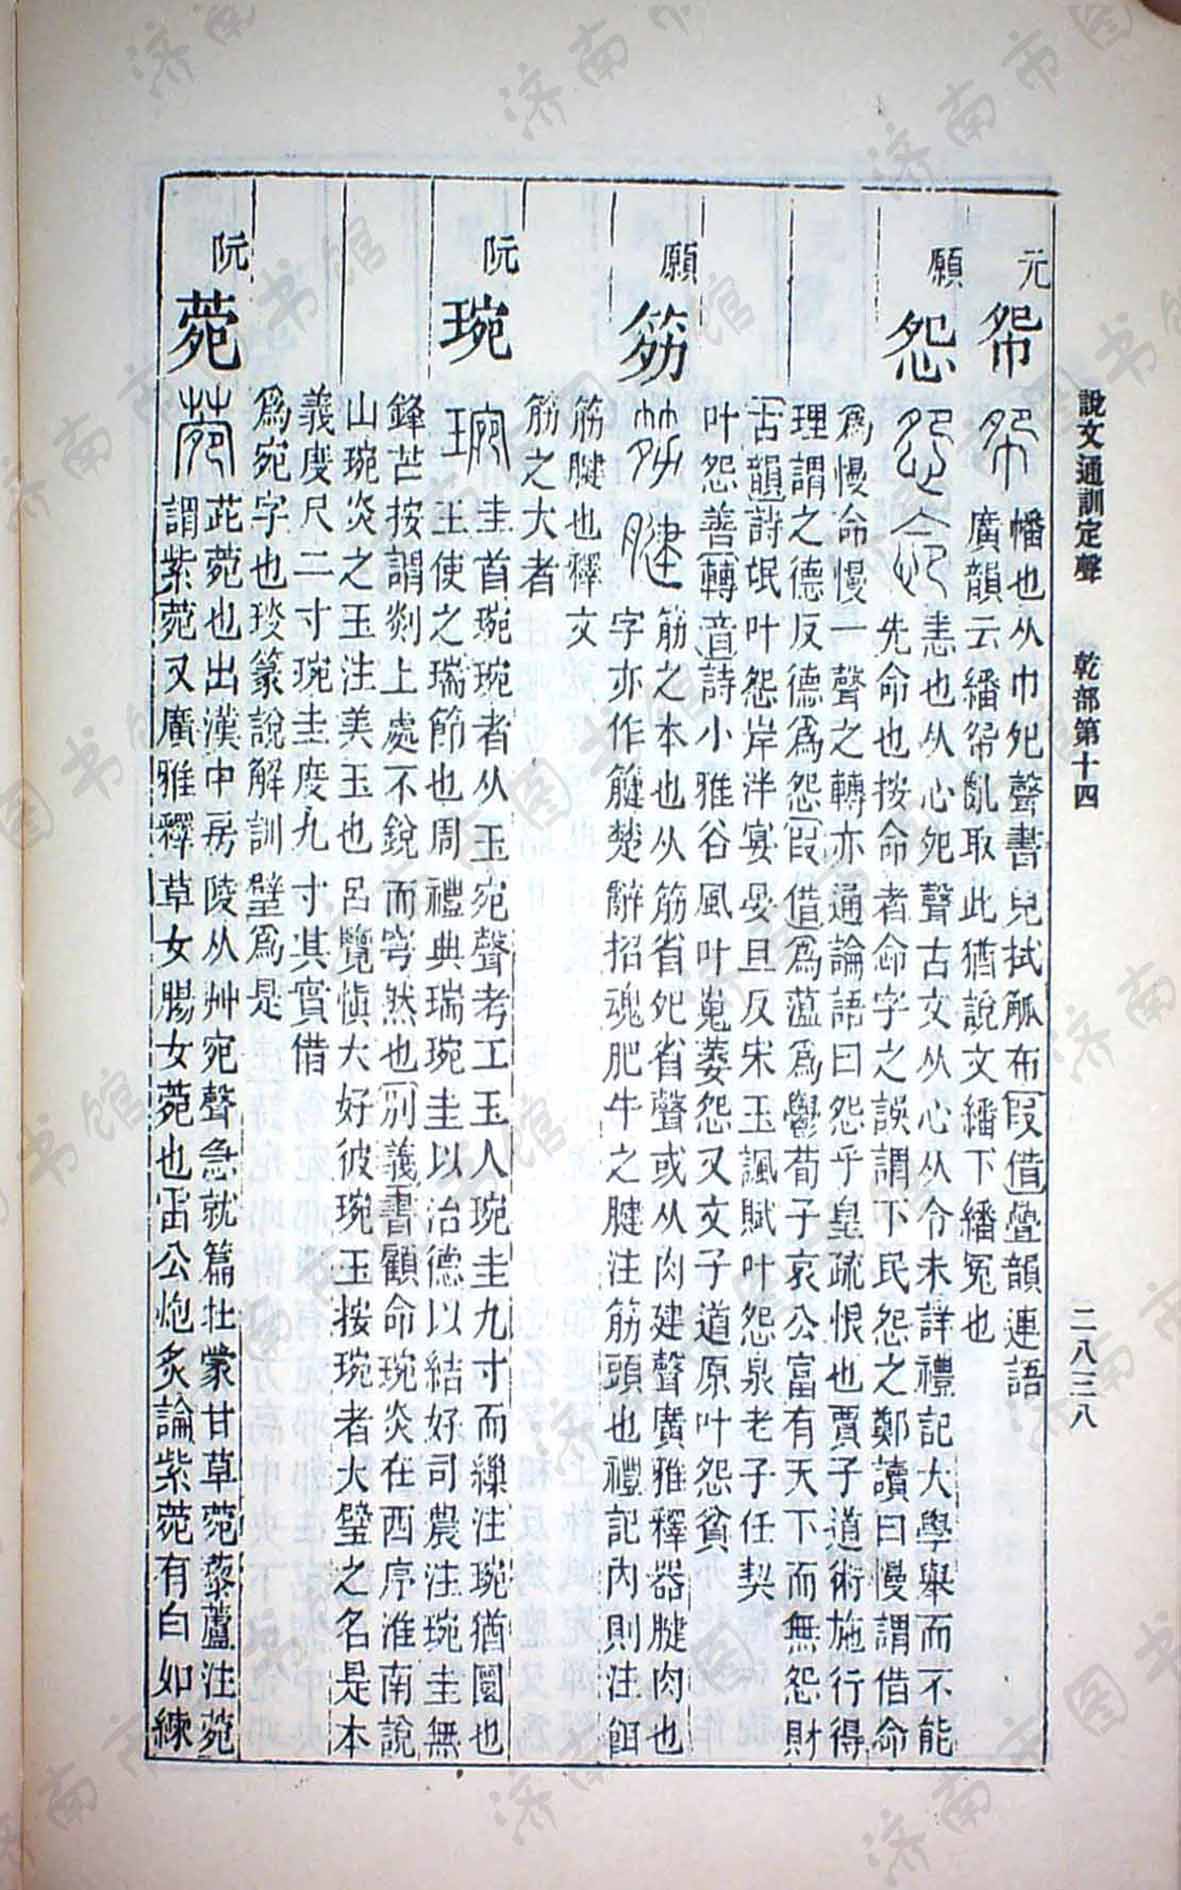 說文通訓定聲 乾部第十四 二八三八
元 㠾 幡也从巾夗聲書皃拭觚布叚借疊韻連語
廣韻云繙㠾亂取此猶說文繙下繙冤也
願 怨 恚也从心夗聲古文从心从令未詳禮記大學舉而不能
先命也按命者㤪字之誤謂下民怨之鄭讀曰慢謂借命
爲慢命慢一聲之轉亦通論語曰怨乎皇疏恨也賈子道術施行得
理謂之德反德爲怨叚借爲薀爲鬱荀子哀公富有天下而無怨財
古韻詩氓叶怨岸泮宴晏旦反宋玉諷賦叶怨泉老子任契
叶怨善轉音詩小雅谷風叶嵬萎怨又文子道原叶怨貧
願 腱 筋之本也从筋省夗省聲或从肉建聲廣雅釋器腱肉也
字亦作䈥楚辭招魂肥牛之腱注筋頭也禮記內則注餌
筋腱也釋文
筋之大者
阮 琬 圭首琬琬者从玉宛聲考工玉人琬圭九寸而繅注琬猶圜也
王使之瑞節也周禮典瑞琬圭以治德以結好司農注琬圭無
鋒芒按謂剡上處不銳而穹然也別義書顧命琬炎在西序淮南說
山琬炎之玉注美玉也呂覽愼大好彼琬玉按琬者大璧之名是本
義度尺二寸琬圭度九寸其實借
爲宛字也琰篆說解訓璧爲是
阮 菀 茈菀也出漢中房陵从艸宛聲急就篇牡蒙甘草菀藜蘆注菀
謂紫菀又廣雅釋草女腸女菀也雷公炮炙論紫菀有白如練
济南市图书馆